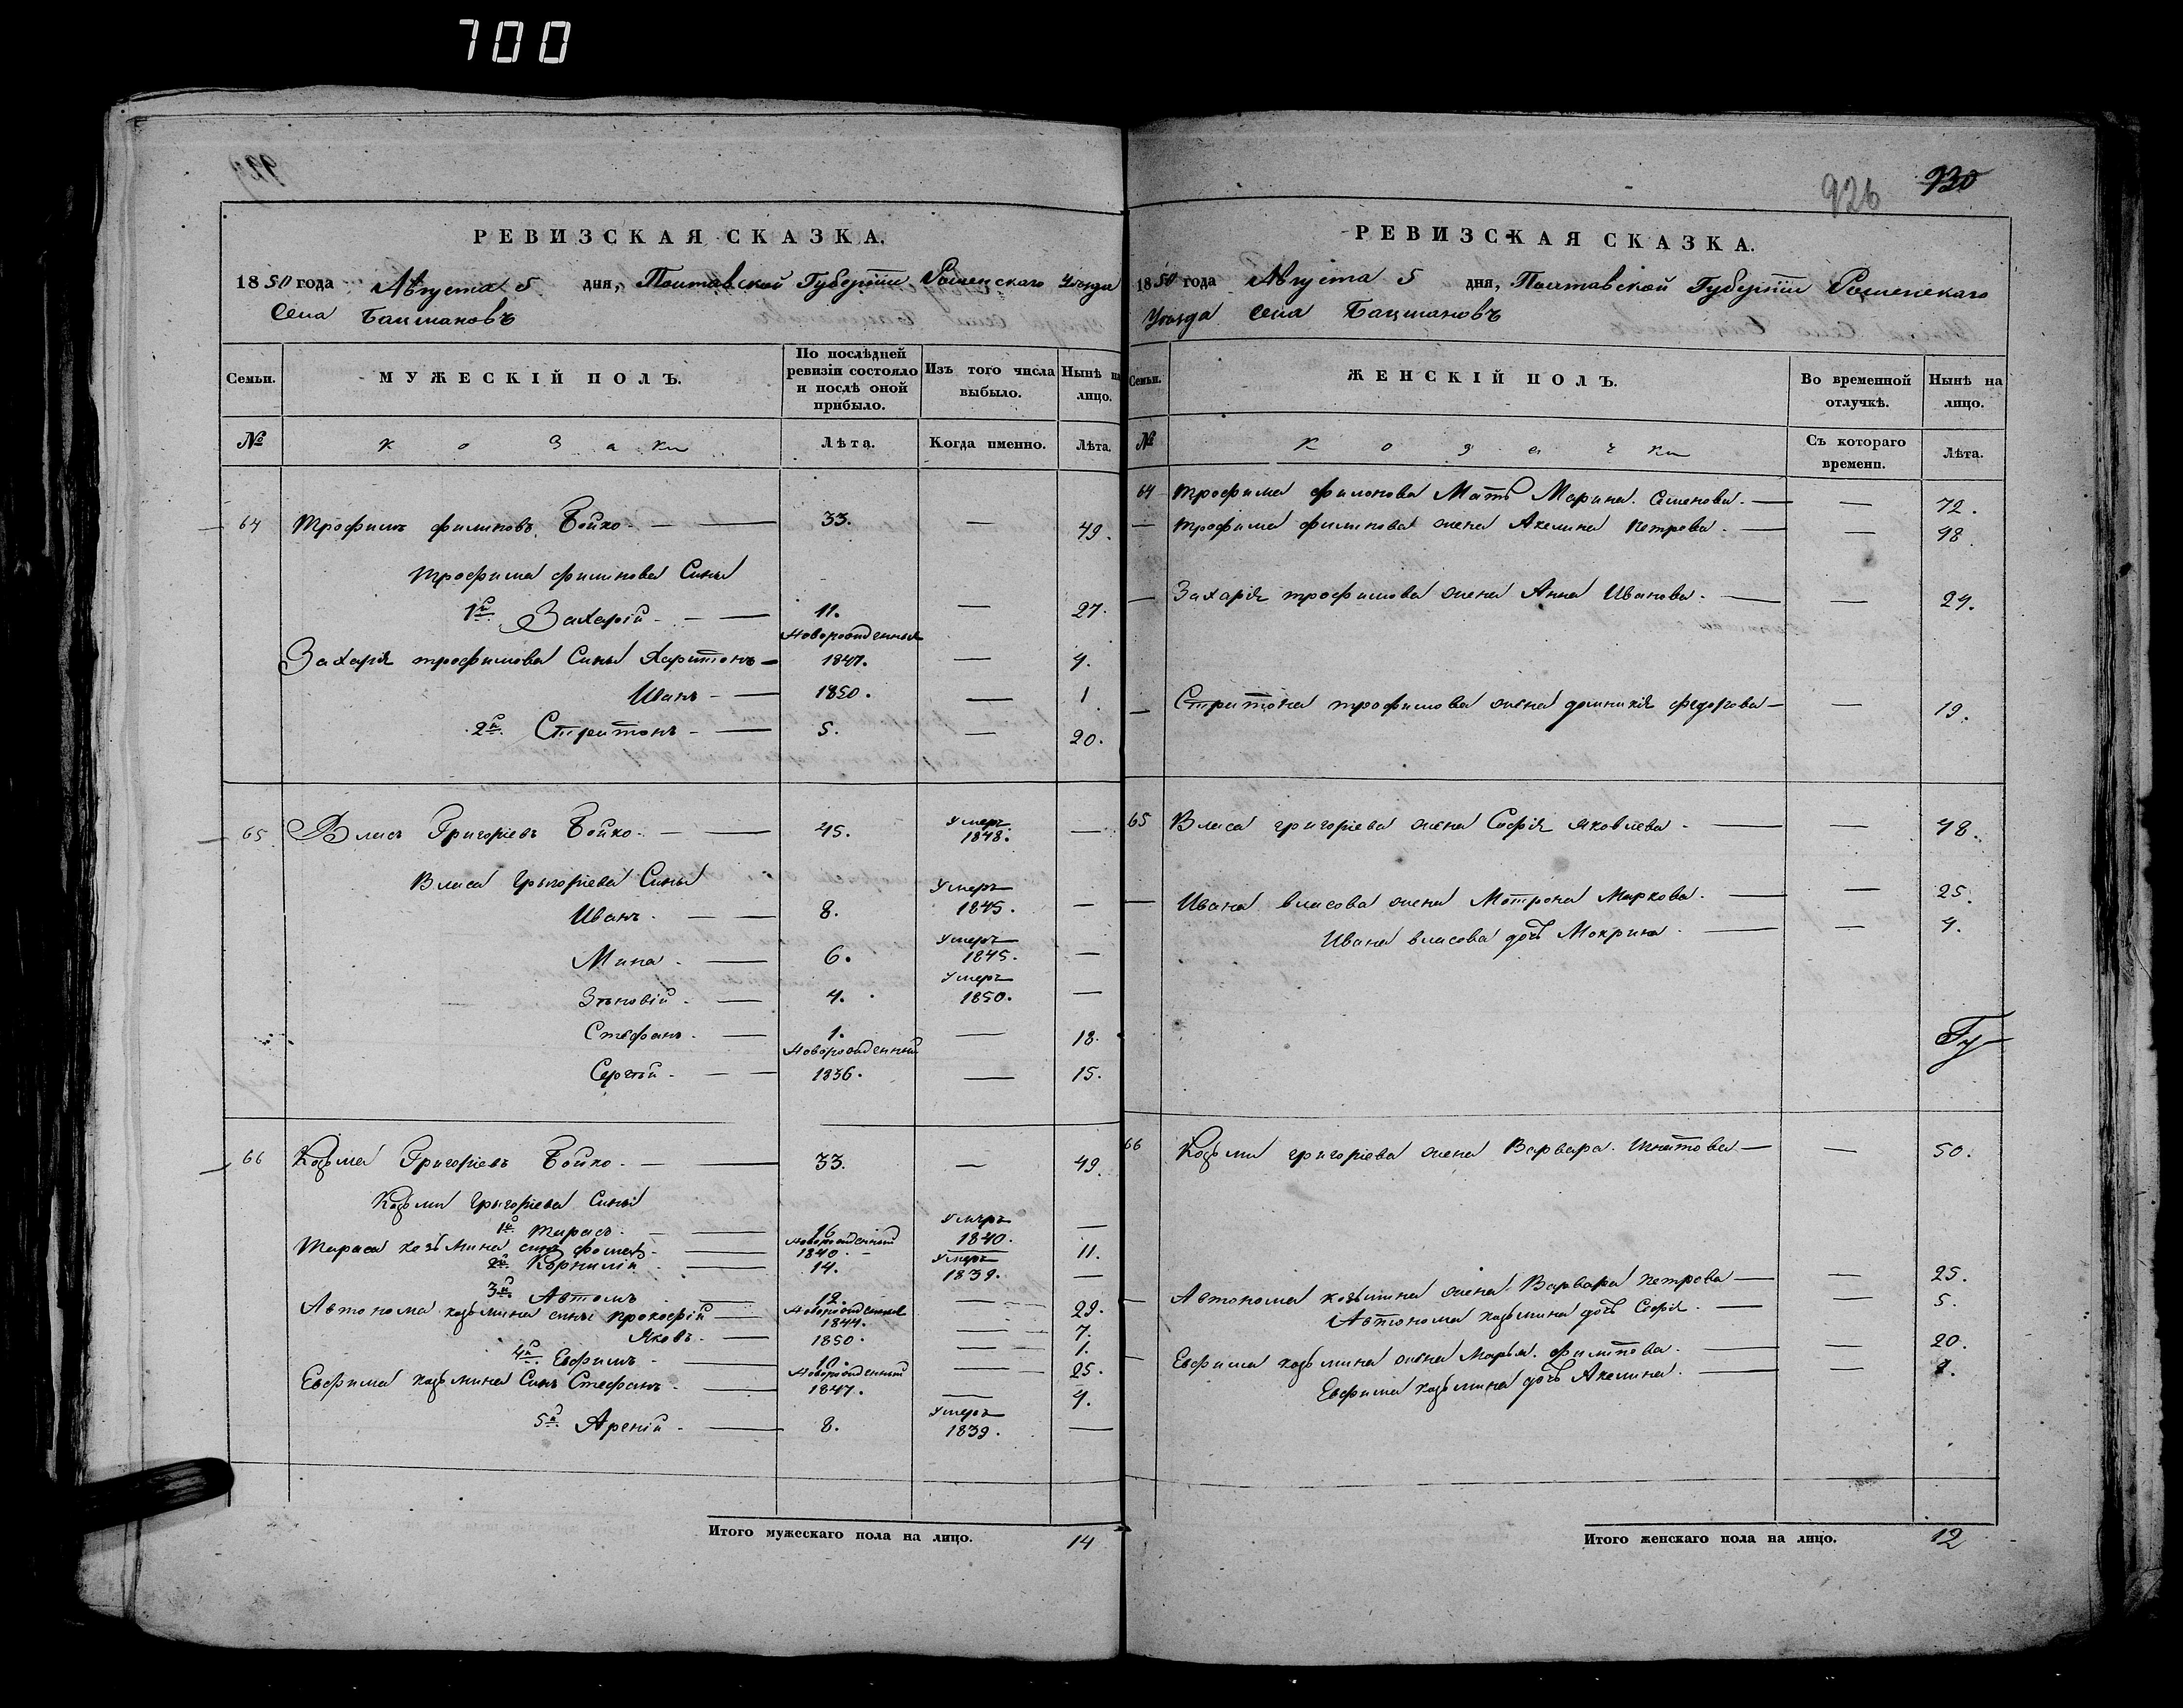 700
РЕВИЗСКАЯ СКАЗКА.
1850 года Августа 5 дня, Полтавской Губерніи Роменскаго Уѣзда
Села Бацмановъ
Семьи. МУЖЕСКІЙ ПОЛЪ. По послѣдней ревизіи состояло и послѣ оной прибыло. Изъ того числа выбыло. Нынѣ на лицо.
№ Козаки Лѣта. Когда именно. Лѣта.
64 Трофимъ Филиповъ Бойко 33. — 49.
Трофима Филипова Сины
1й Захарій 11. — 27.
Новорожденныя
Захарія Трофимова Сины Харитонъ 1847. — 4.
Иванъ 1850. — 1
2й Стритонъ 5. — 20.
65 Власъ Григоріевъ Бойко 45. Умеръ 1848. —
Власа Григоріева Сины
Иванъ 8. Умеръ 1845. —
Мина 6. Умеръ 1845. —
Зѣновій 4. Умеръ 1850. —
Стефанъ 1. — 18.
Новорожденный
Сергѣй 1836. — 15.
66 Козьма Григоріевъ Бойко 33. — 49.
Козьми Григоріева Сины
1й Тарасъ 16 Умеръ 1840. —
Тараса Козьмина синъ Фома Новорожденный 1840 11.
2й Корнилій 14. Умеръ 1839. —
3й Автомъ 12. — 29.
Автонома Козьмина сины Прокофій Новорожденные 1844. — 7.
Яковъ 1850. — 1.
4й Евфимъ 10. — 25.
Евфима Козьмина Синъ Стефанъ Новорожденный 1847. — 4.
5й Арсній 8. Умеръ 1839. —
Итого мужескаго пола на лицо. 14
926 930
РЕВИЗСКАЯ СКАЗКА.
1850 года Августа 5 дня, Полтавской Губерніи Роменскаго
Уѣзда Села Бацмановъ
Семьи. ЖЕНСКІЙ ПОЛЪ. Во временной отлучкѣ. Нынѣ на лицо.
№ Козачки Съ котораго времени. Лѣта.
64 Трофима Филипова Мать Марина Семенова — 72.
Трофима Филипова жена Акелина Петрова — 48
Захарія Трофимова жена Анна Иванова — 24.
Стритона Трофимова жена Домникія Федорова — 19.
65 Власа Григоріева жена Софія Яковлева — 48.
Ивана Власова жена Мотрона Маркова — 25.
Ивана Власова дочь Мокрина — 4.
66 Козьми Григоріева жена Варвара Игнатова — 50.
Автонома Козьмина жена Варвара Петрова — 25.
Автонома Козьмина дочь Софія — 5.
Евфима Козьмина жена Марья Филипова — 20.
Евфима Козьмина дочь Акелина —
Итого женскаго пола на лицо. 12